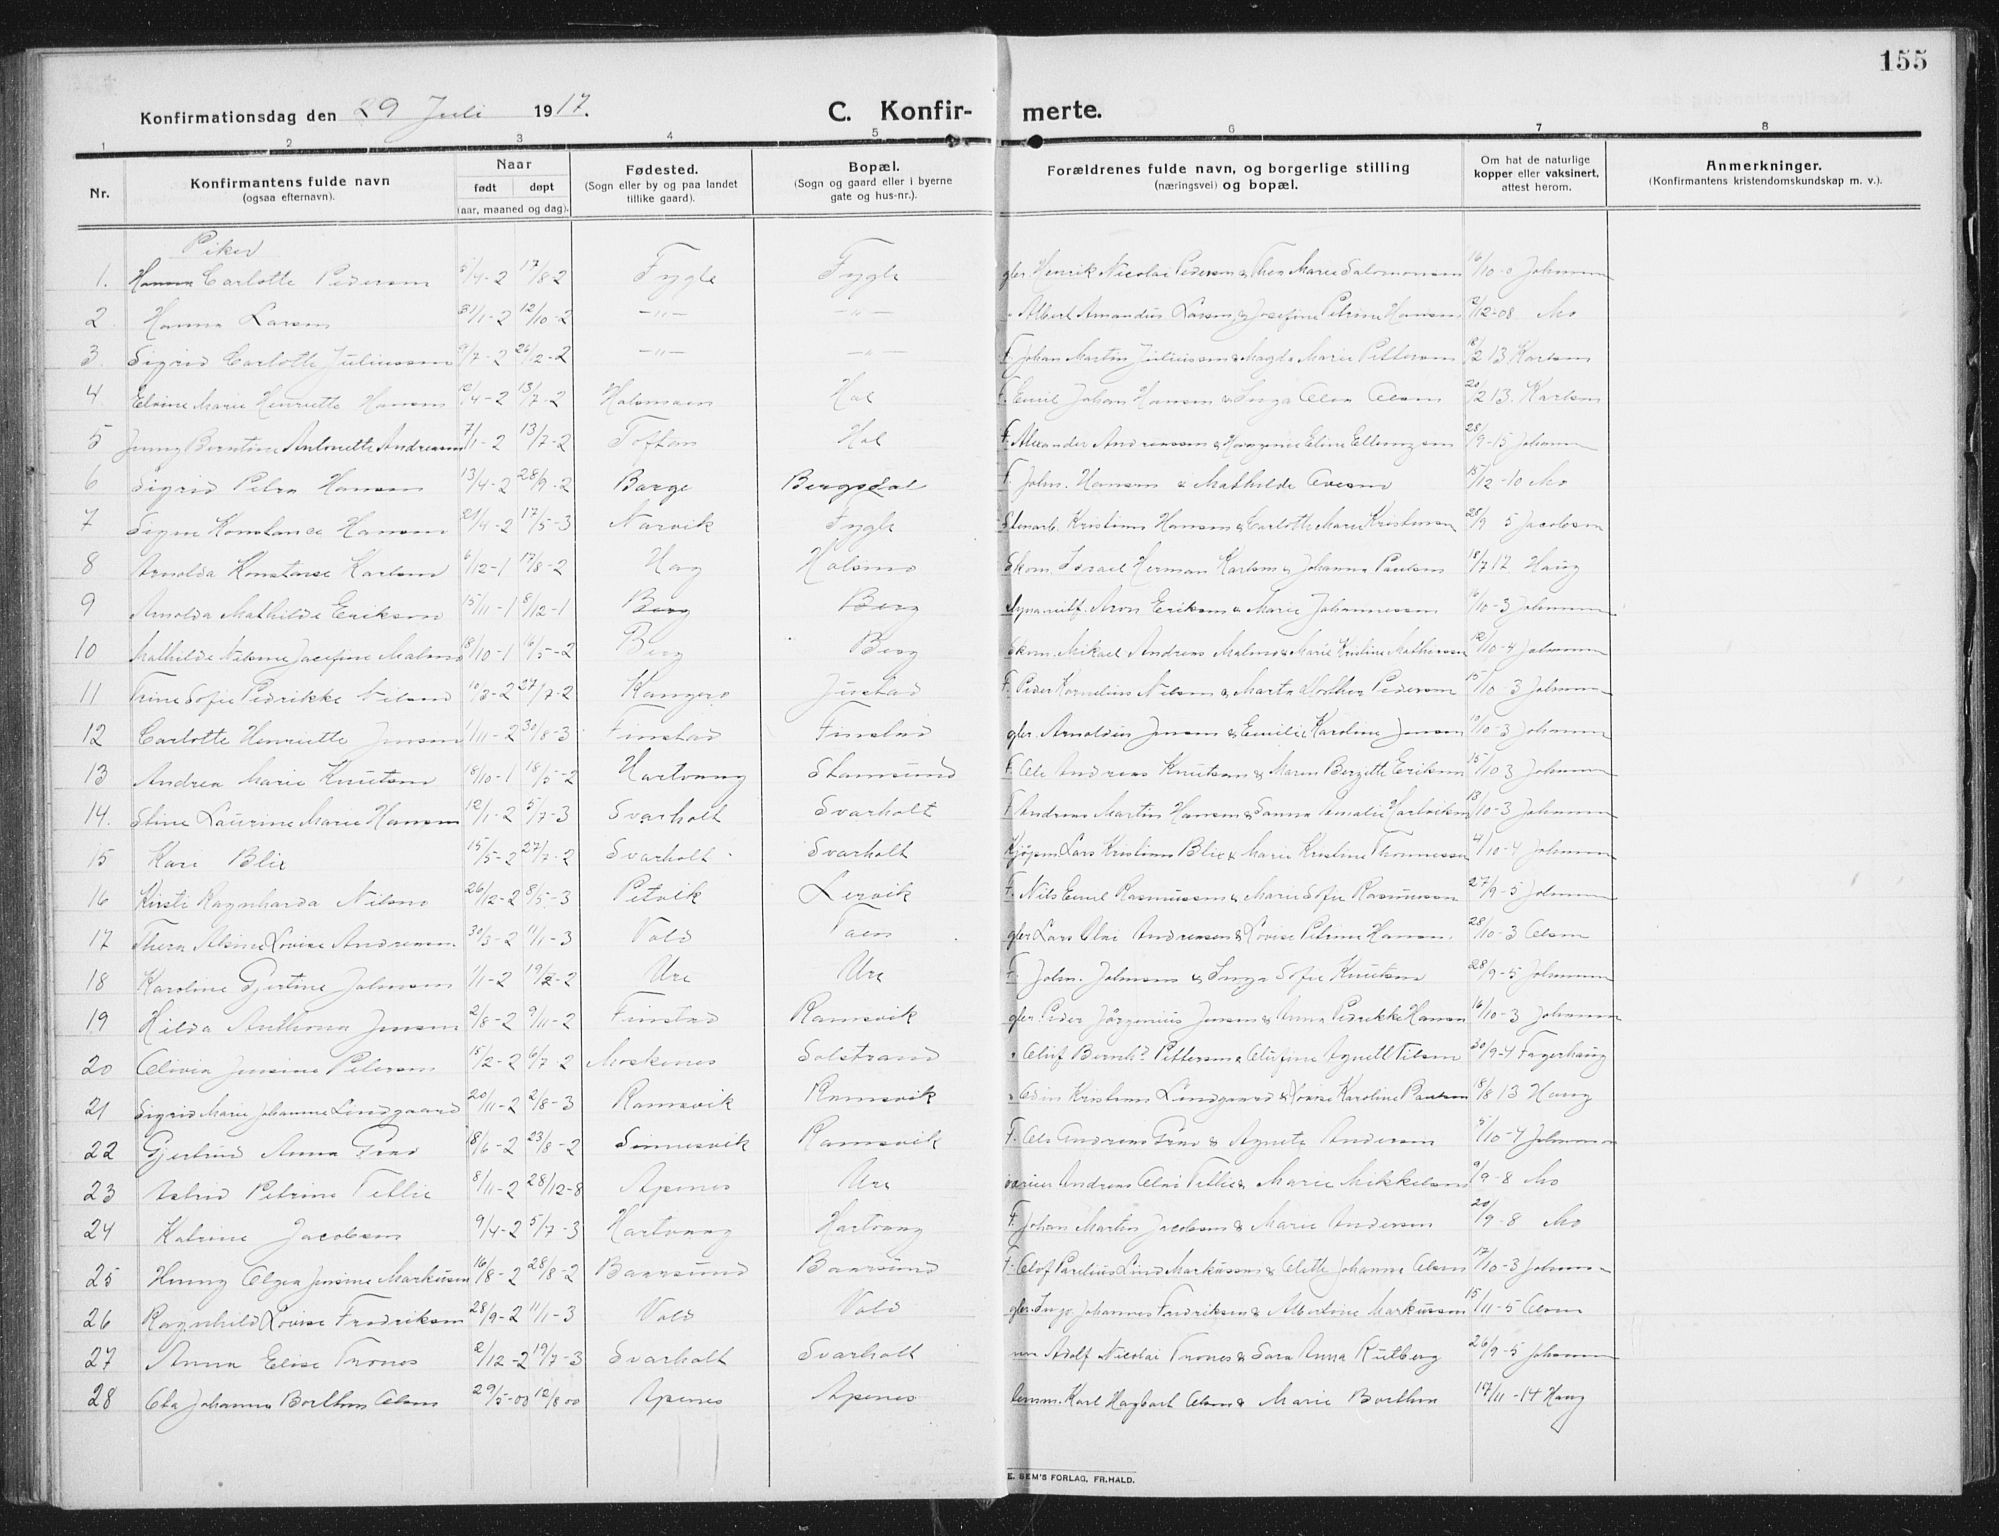 155
Konfirmationsdag den 29 Juli 1917. C. Konfirmerte.
1 2 3 4 5 6 7 8
Nr. Konfirmantens fulde navn (ogsaa efternavn). Naar født døpt (aar, maaned og dag). Fødested. (Sogn eller by og paa landet tillike gaard). Bopæl. (Sogn og gaard eller i byerne gate og hus-nr.). Forældrenes fulde navn, og borgerlige stilling (næringsvei) og bopæl. Om hat de naturlige kopper eller vaksinert, attest herom. Anmerkninger. (Konfirmantens kristendomskundskap m. v.).
Piker
1. Hanna Carlotte Pedersen 5/4-2 17/8-2 Fygle Fygle Henrik Nicolai Pedersen & Thea Marie Salomonsen 16/10-0 Johansen
2. Hanna Larsen 31/1-2 12/10-2 -"- -"- Albert Amandus Larsen & Josefine Petrine Hansen 2/12-08 Mo
3. Sigrid Carlotte Juliussen 9/7-2 26/2-2 -"- -"- F. Johan Martin Juliussen & Magda Marie Pettersen 18/2 13 Karlsen
4 Elvine Marie Henriette Hansen 12/4-2 13/7-2 Holsmoen Hol F. Emil Johan Hansen & Inga Olea Olsen 20/2 13. Karlsen
5 Jenny Berntine Antonette Andreassen 7/1-2 13/7-2 Toften Hol F. Alexander Andreassen & Eline Ellingsen 28/9-15 Johansen
6 Sigrid Petra Hansen 13/4-2 28/9-2 Borge Bergsdal F. John. Hansen & Mathilde 15/12-10 Mo
7 Signe Konstance Hansen 21/4-2 17/5-3 Narvik Fygle Stenarb. Kristian Hansen & Carlotte Marie Kristensen 28/9 5 Jacobsen
8 Arnolda Konstanse Karlsen 6/12-1 17/8-2 Hag Holsmo Skom. Israel Herman Karlsen & Johanna Paulsen 18/7 17 Haug
9 Arnolda Mathilde Eriksen 15/11-1 8/12-1 Berg Berg Aron Eriksen & Marie Johannessen 16/10-3 Johansen
10 Mathilde Nilsine Josefine Malmo 18/10-1 16/5-2 Berg Berg Skom. Mikael Andreas Malmo & Marie Kristine Mathisen 12/10-4 Johansen
11 Trine Sofie Pedrikke Nilsen 10/3-2 27/7-2 Kangerø Justad F. Peder Kornelius Nilsen & Marta Pedersen 15/10-3 Johansen
12 Carlotte Henriette Jensen 1/11-2 30/8-3 Finstad Finstad gbr. Arnoldus Jensen & Emilie Karoline Jensen 10/10-3 Johansen
13 Andrea Marie Knutsen 18/10-1 18/5-2 Hartvaag Stamsund F. Ole Andreas Knutsen & Maren Bergitte Eriksen 15/10 3 Johansen
14. Stine Laurine Marie Hansen 12/1-2 5/7-3 Svarholt Svarholt F Andreas Martin Hansen & Sanna Amalie Hartviksen 13/10-3 Johansen
15 Kari Blix 15/5-2 27/7-2 Svarholt Svarholt Kjøpm. Lars Kristian Blix & Marie Kristine Thonnessen 4/10-4 Johansen
16 Kirsti Ragnharda Nilsen 26/12-2 8/5-3 Petvik Lervik F. Nils Emil Rasmussen & Marie Sofie Rasmussen 27/9-5 Johansen
17 Thera Alsine Lovise Andersen 30/3-2 11/1-3 Vold Taen gbr. Lars Olai Andersen & Lovise Petrine Hansen 28/10-3 Olsen
18 Karoline Gjertine Johnsen 1/1-2 19/2-2 Ure Ure F. John. Johnsen & Inga Sofie Knutsen 28/9-5 Johansen
19 Hilda Anthona Jensen 2/8-2 9/11-2 Finstad Ramsvik gbr. Peder Jørgenius Jensen & Anna Pedrikke Hansen 16/10-3 Johansen
20 Olivia Jensine Petersen 15/2-2 6/7-2 Moskenes Solstrand Oluf Bernh.d Pettersen & Olufine Agnett Nilsen 30/9-4 Fagerhaug
21 Sigrid Marie Johanne Lindgaard 20/11-2 2/8-3 Ramsvik Ramsvik Odin Kristian Lindgaard & Lovise Karoline Paulsen 18/8 13 Haug
22 Gjertrud Anna Frad 18/6-2 23/8-2 Sennesvik Ramsvik F. Ole Andreas Frad & Agnete Andersen 5/10-4 Johansen
23 Astrid Petrine Tetlie 8/11-2 28/12-8 Apenes Ure Andreas Olai Tetlie & Marie Mikkelsen 9/9-8 Mo
24 Katrine Jacobsen 9/4-2 5/7-3 Hartvaag Hartvaag F. Johan Martin Jacobsen & Marie Andersen 20/9-8 Mo
25 Henny Olgea Jensine Markusen 16/8-2 28/8-2 Baarsund Baarsund F. Olof Parelius Lind Markussen & Olette Johanna Olsen 17/10-3 Johansen
26 Ragnhild Lovise Fredriksen 28/9-2 11/1-3 Vold Vold gbr. Ingv. Johannes Fredriksen & Albertine Markussen 15/11-5 Olsen
27 Anna Elise Trones 2/12-2 19/7-3 Svarholt Svarholt Adolf Nicolai Trones & Sara Anna Rutberg 26/9-5 Johansen
28 Ota Johanna Borthen Olsen 29/5-00 12/8 00 Apenes Apenes Karl Hagbart Olsen & Marie Borthen 17/11-14 Haug
E. SEM'S FORLAG, FR.HALD.